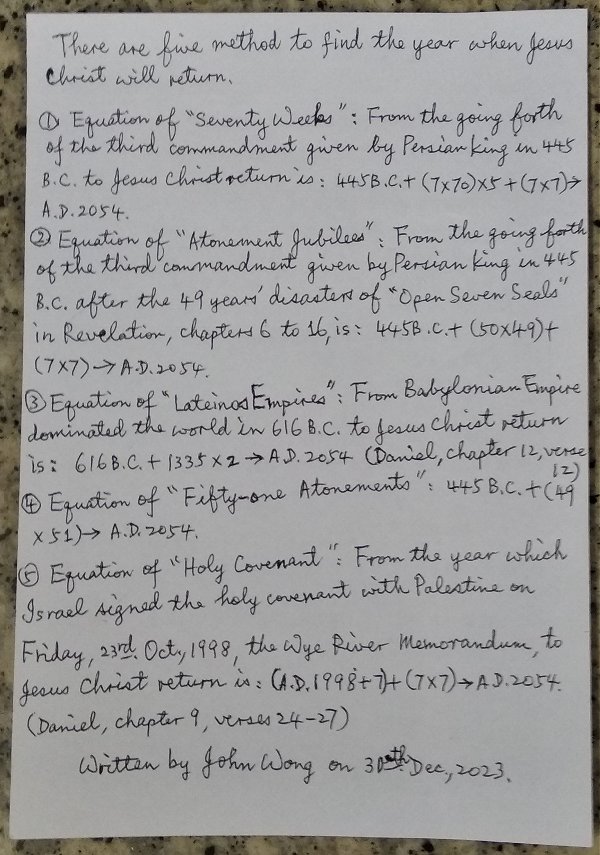 There are five method to find the year when Jesus
Christ will return.
① Equation of "Seventy Weeks": From the going forth
of the third commandment given by Persian King in 445
B.C. to Jesus Christ return is: 445B.C.+(7x70)x5+(7x7)→
A.D.2054.
② Equation of "Atonement Jubilees": From the going forth
of the third commandment given by Persian King in 445
B.C. after the 49 years' disasters of "Open Seven Seals"
in Revelation, chapters 6 to 16, is: 445B.C.+(50x49)+
(7x7)→A.D.2054.
③ Equation of "Lateinos Empires": From Babylonian Empire
dominated the world in 616 B.C. to Jesus Christ return
is: 616B.C.+1335x2→A.D.2054 (Daniel, chapter 12, verse
12)
④ Equation of "Fifty-one Atonements": 445B.C.+(49
x51)→A.D.2054.
⑤ Equation of "Holy Covenant": From the year which
Israel signed the holy covenant with Palestine on
Friday, 23rd. Oct., 1998, the Wye River Memorandum, to
Jesus Christ return is: (A.D.1998+7)+(7x7)→A.D.2054.
(Daniel, chapter 9, verses 24-27)
Written by John Wong on 30th Dec., 2023.